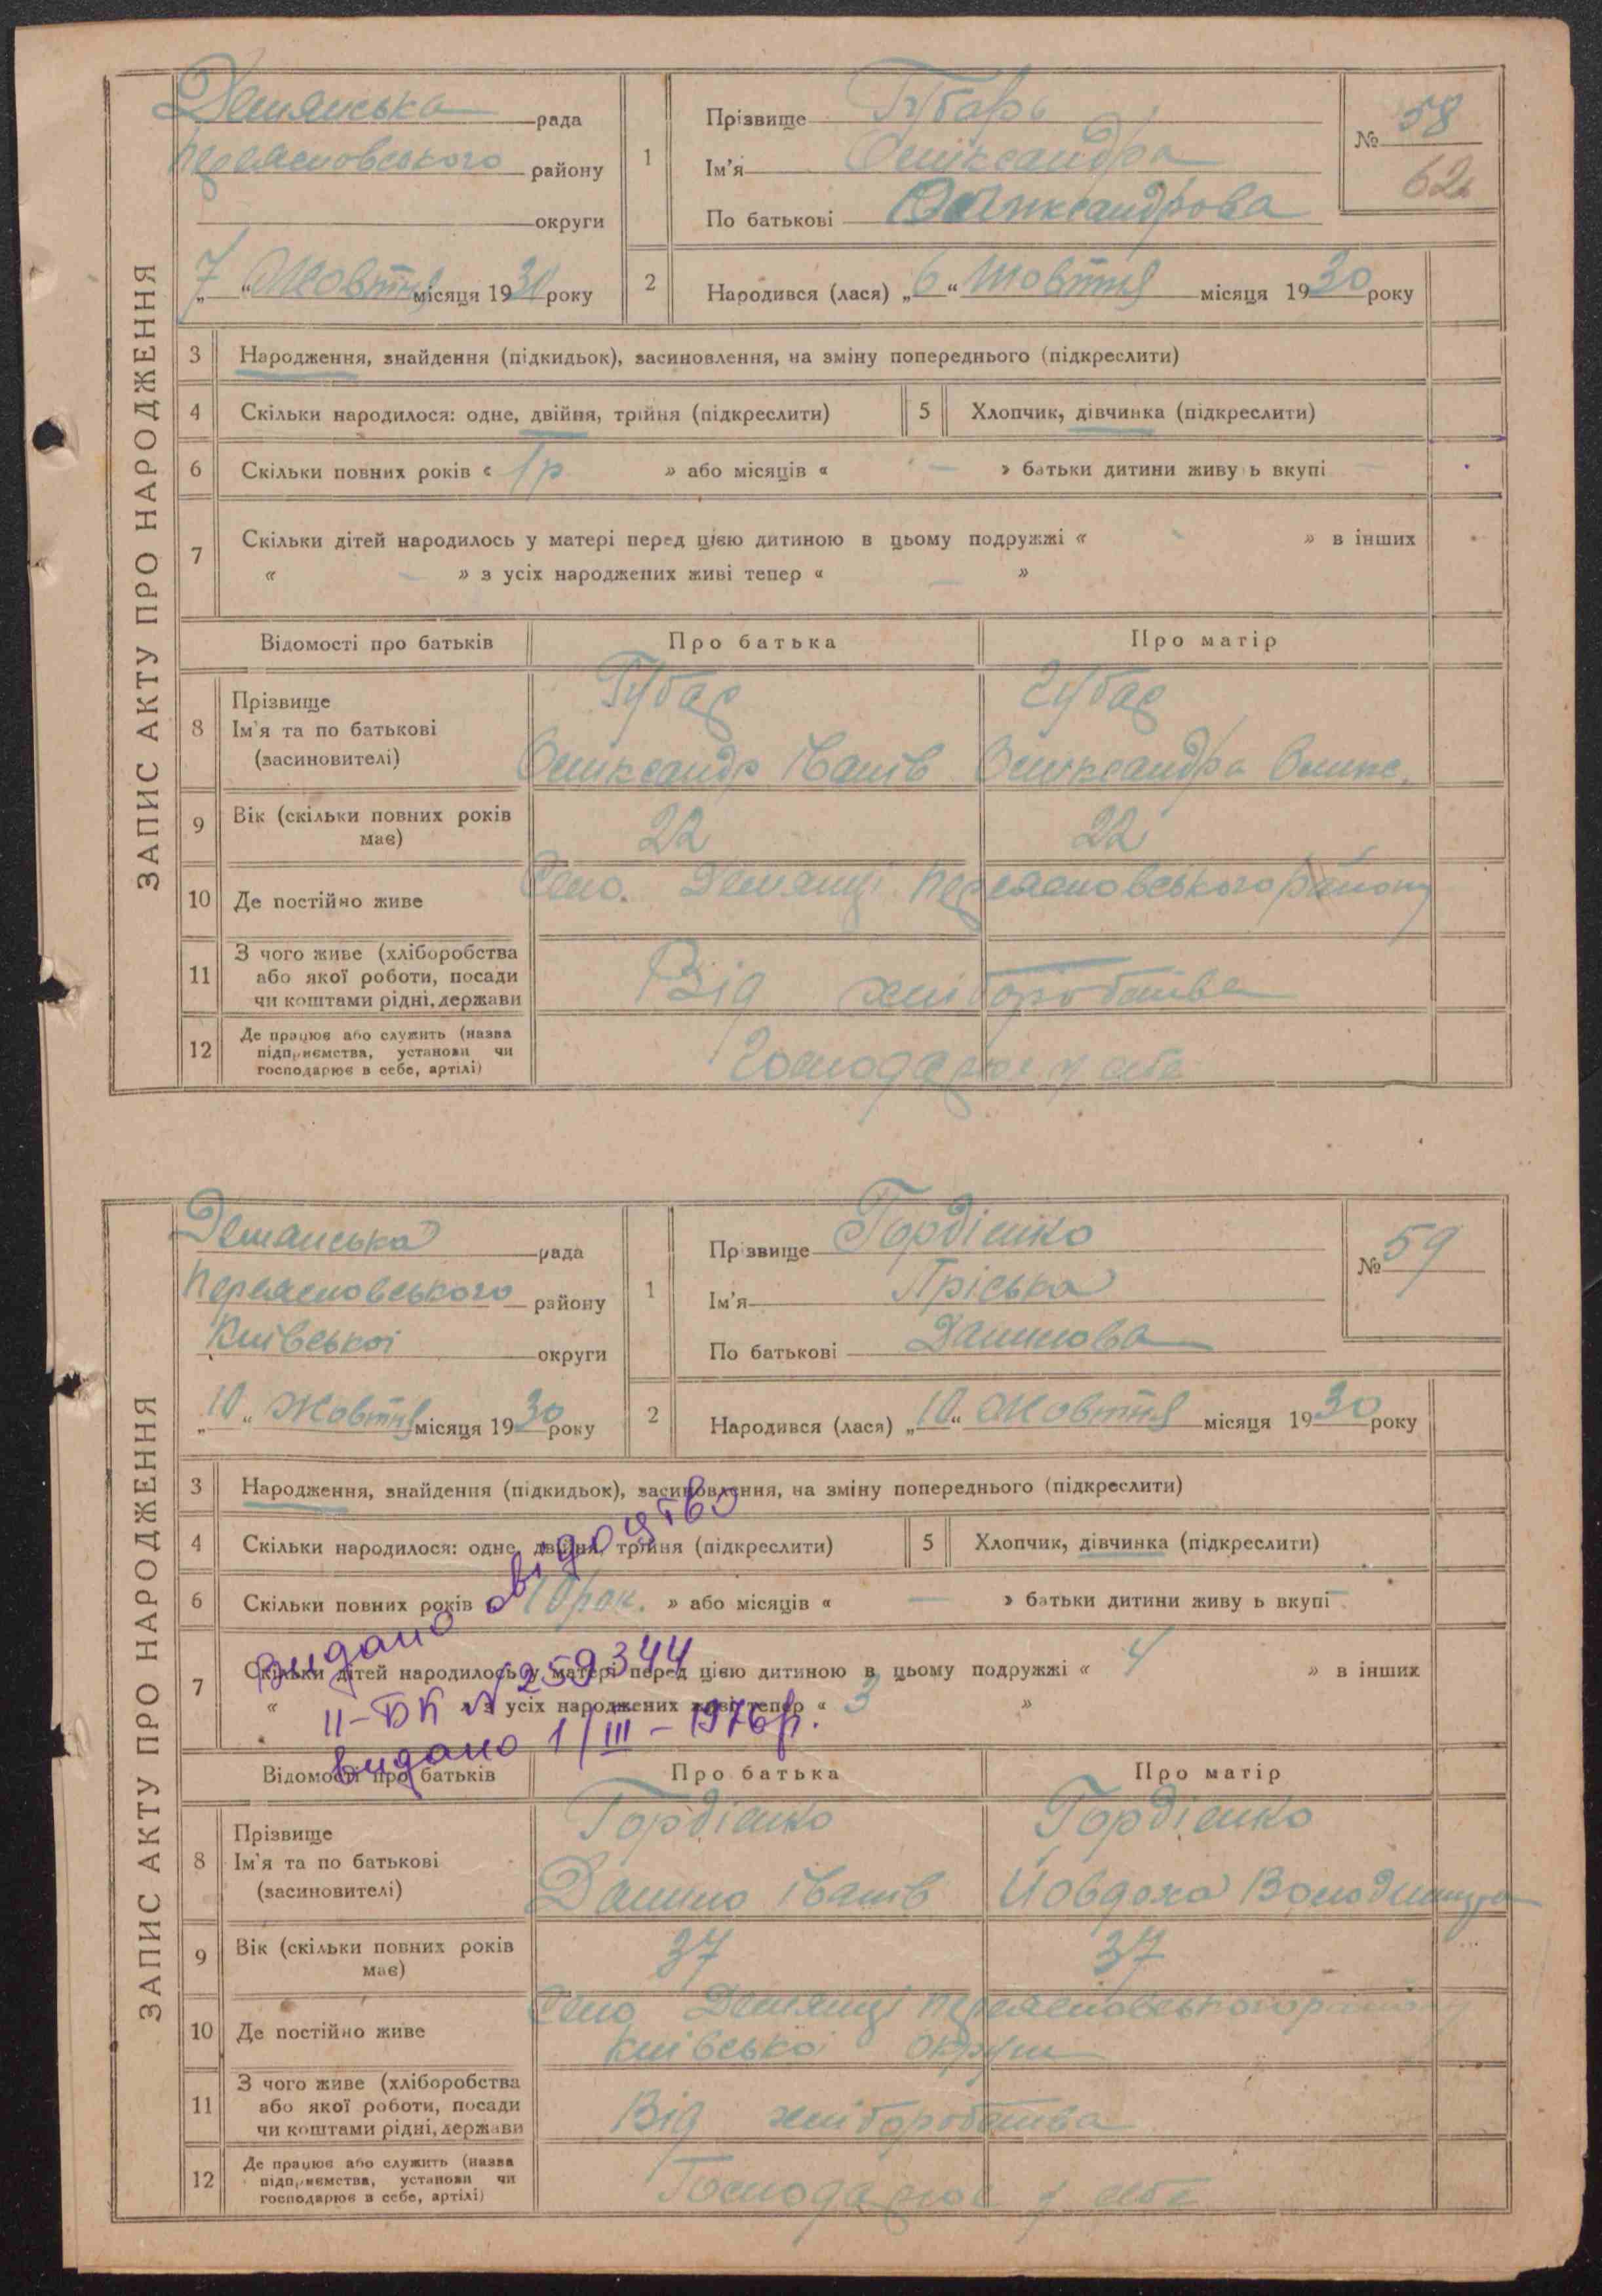 ЗАПИС АКТУ ПРО НАРОДЖЕННЯ
Демянська рада
Переясловського району
округи
„7“ Жовтня місяця 1930 року
1
Прізвище Губарь
Ім'я Олександра
По батькові Олександрова
№ 58
62
2
Народився (лася) „6“ Жовтня місяця 1930 року
3 Народження, знайдення (підкидьок), засиновлення, на зміну попереднього (підкреслити)
4 Скільки народилося: одне, двійня, трійня (підкреслити)
5 Хлопчик, дівчинка (підкреслити)
6 Скільки повних років « 1 р » або місяців « — » батьки дитини живуть вкупі —
7 Скільки дітей народилось у матері перед цією дитиною в цьому подружжі « - » в інших
« — » з усіх народжених живі тепер « — »
Відомості про батьків Про батька Про матір
8 Прізвище
Ім'я та по батькові
(засиновителі)
Губар
Олександр Іванів
Губар
Олександра
9 Вік (скільки повних років має) 22 22
10 Де постійно живе Село Демянці Переясловського району
11 З чого живе (хліборобства
або якої роботи, посади
чи коштами рідні, держави
Від хліборобства
12 Де працює або служить (назва
підприємства, установи чи
господарює в себе, артілі)
Господарює у себе
ЗАПИС АКТУ ПРО НАРОДЖЕННЯ
Демянська рада
Переясловського району
Київської округи
„10“ Жовтня місяця 1930 року
1
Прізвище Гордієнко
Ім'я Пріська
По батькові Данилова
№ 59
2
Народився (лася) „10“ Жовтня місяця 1930 року
3 Народження, знайдення (підкидьок), засиновлення, на зміну попереднього (підкреслити)
4 Скільки народилося: одне, двійня, трійня (підкреслити)
5 Хлопчик, дівчинка (підкреслити)
6 Скільки повних років « 10 рок. » або місяців « — » батьки дитини живуть вкупі —
7 Скільки дітей народилось у матері перед цією дитиною в цьому подружжі « 4 » в інших
« » з усіх народжених живі тепер « 3 »
Видано свідоцтво
II-БК № 259344
видано 1/III-1976р.
Відомості про батьків Про батька Про матір
8 Прізвище
Ім'я та по батькові
(засиновителі)
Гордієнко
Данило Іванів
Гордієнко
Йовдоха
9 Вік (скільки повних років має) 37 37
10 Де постійно живе Село Демянці Переясловського району
Київської округи
11 З чого живе (хліборобства
або якої роботи, посади
чи коштами рідні, держави
Від хліборобства
12 Де працює або служить (назва
підприємства, установи чи
господарює в себе, артілі)
Господарює у себе